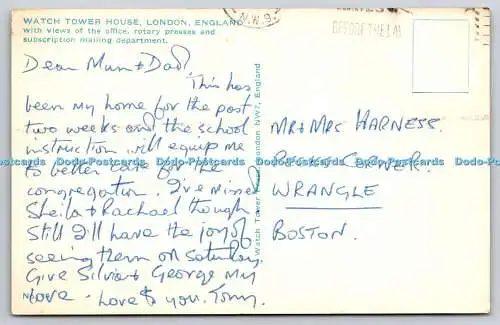 WATCH TOWER HOUSE, LONDON, ENGLAND
with views of the office, rotary presses and
subscription mailing department.
N.W.9
Dear Mum & Dad,
This has
been my home for the past
two weeks and the school
instruction will equip me
to better care for the
congregation. I've missed
Sheila & Rachael though
still I'll have the joy of
seeing them on Saturday
Give Silvia & George my
love. Love to you. Tony.
Watch Tower London NW7, England
MR & MRS HARNESS.
CORNER.
WRANGLE
BOSTON.
Dodo-Postcards Dodo-Postcards Dodo-Postcards Dodo-Postcards